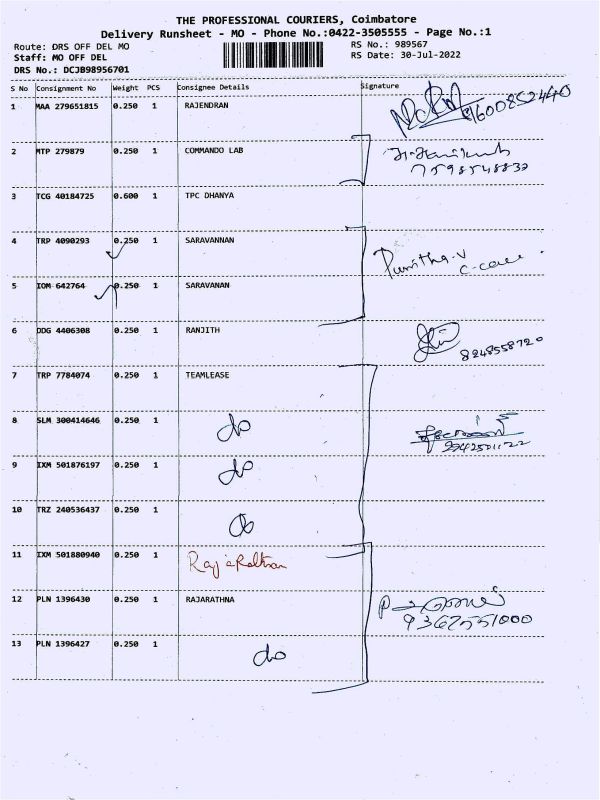 THE PROFESSIONAL COURIERS, Coimbatore
Delivery Runsheet - MO - Phone No.:0422-3505555 - Page No.:1
Route: DRS OFF DEL MO
RS No.: 989567
Staff: MO OFF DEL
RS Date: 30-Jul-2022
DRS No.: DCJB98956701
S No Consignment No Weight PCS Consignee Details Signature
1 MAA 279651815 0.250 1 RAJENDRAN 9600852440
2 MTP 279879 0.250 1 COMMANDO LAB
7598548832
3 TCG 40184725 0.600 1 TPC DHANYA
4 TRP 4090293 0.250 1 SARAVANNAN Punitha.V
5 IOM 642764 0.250 1 SARAVANAN
6 DDG 4406308 0.250 1 RANJITH 8248558720
7 TRP 7784074 0.250 1 TEAMLEASE
8 SLM 300414646 0.250 1 do
9 IXM 501876197 0.250 1 do
10 TRZ 240536437 0.250 1 do
11 IXM 501880940 0.250 1
12 PLN 1396430 0.250 1 RAJARATHNA
13 PLN 1396427 0.250 1 do